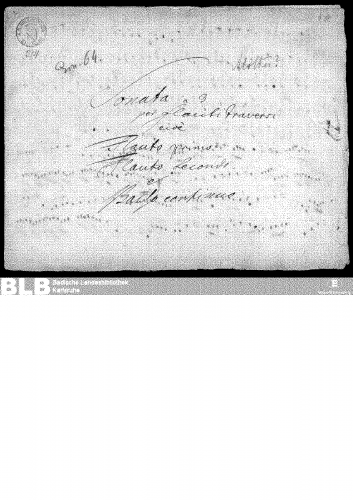 64.
Molter?
Sonata a 3
per flauti traversi
cioè
Flauto primo
Flauto secondo
e
Basso continuo
BLB Badische Landesbibliothek
Karlsruhe